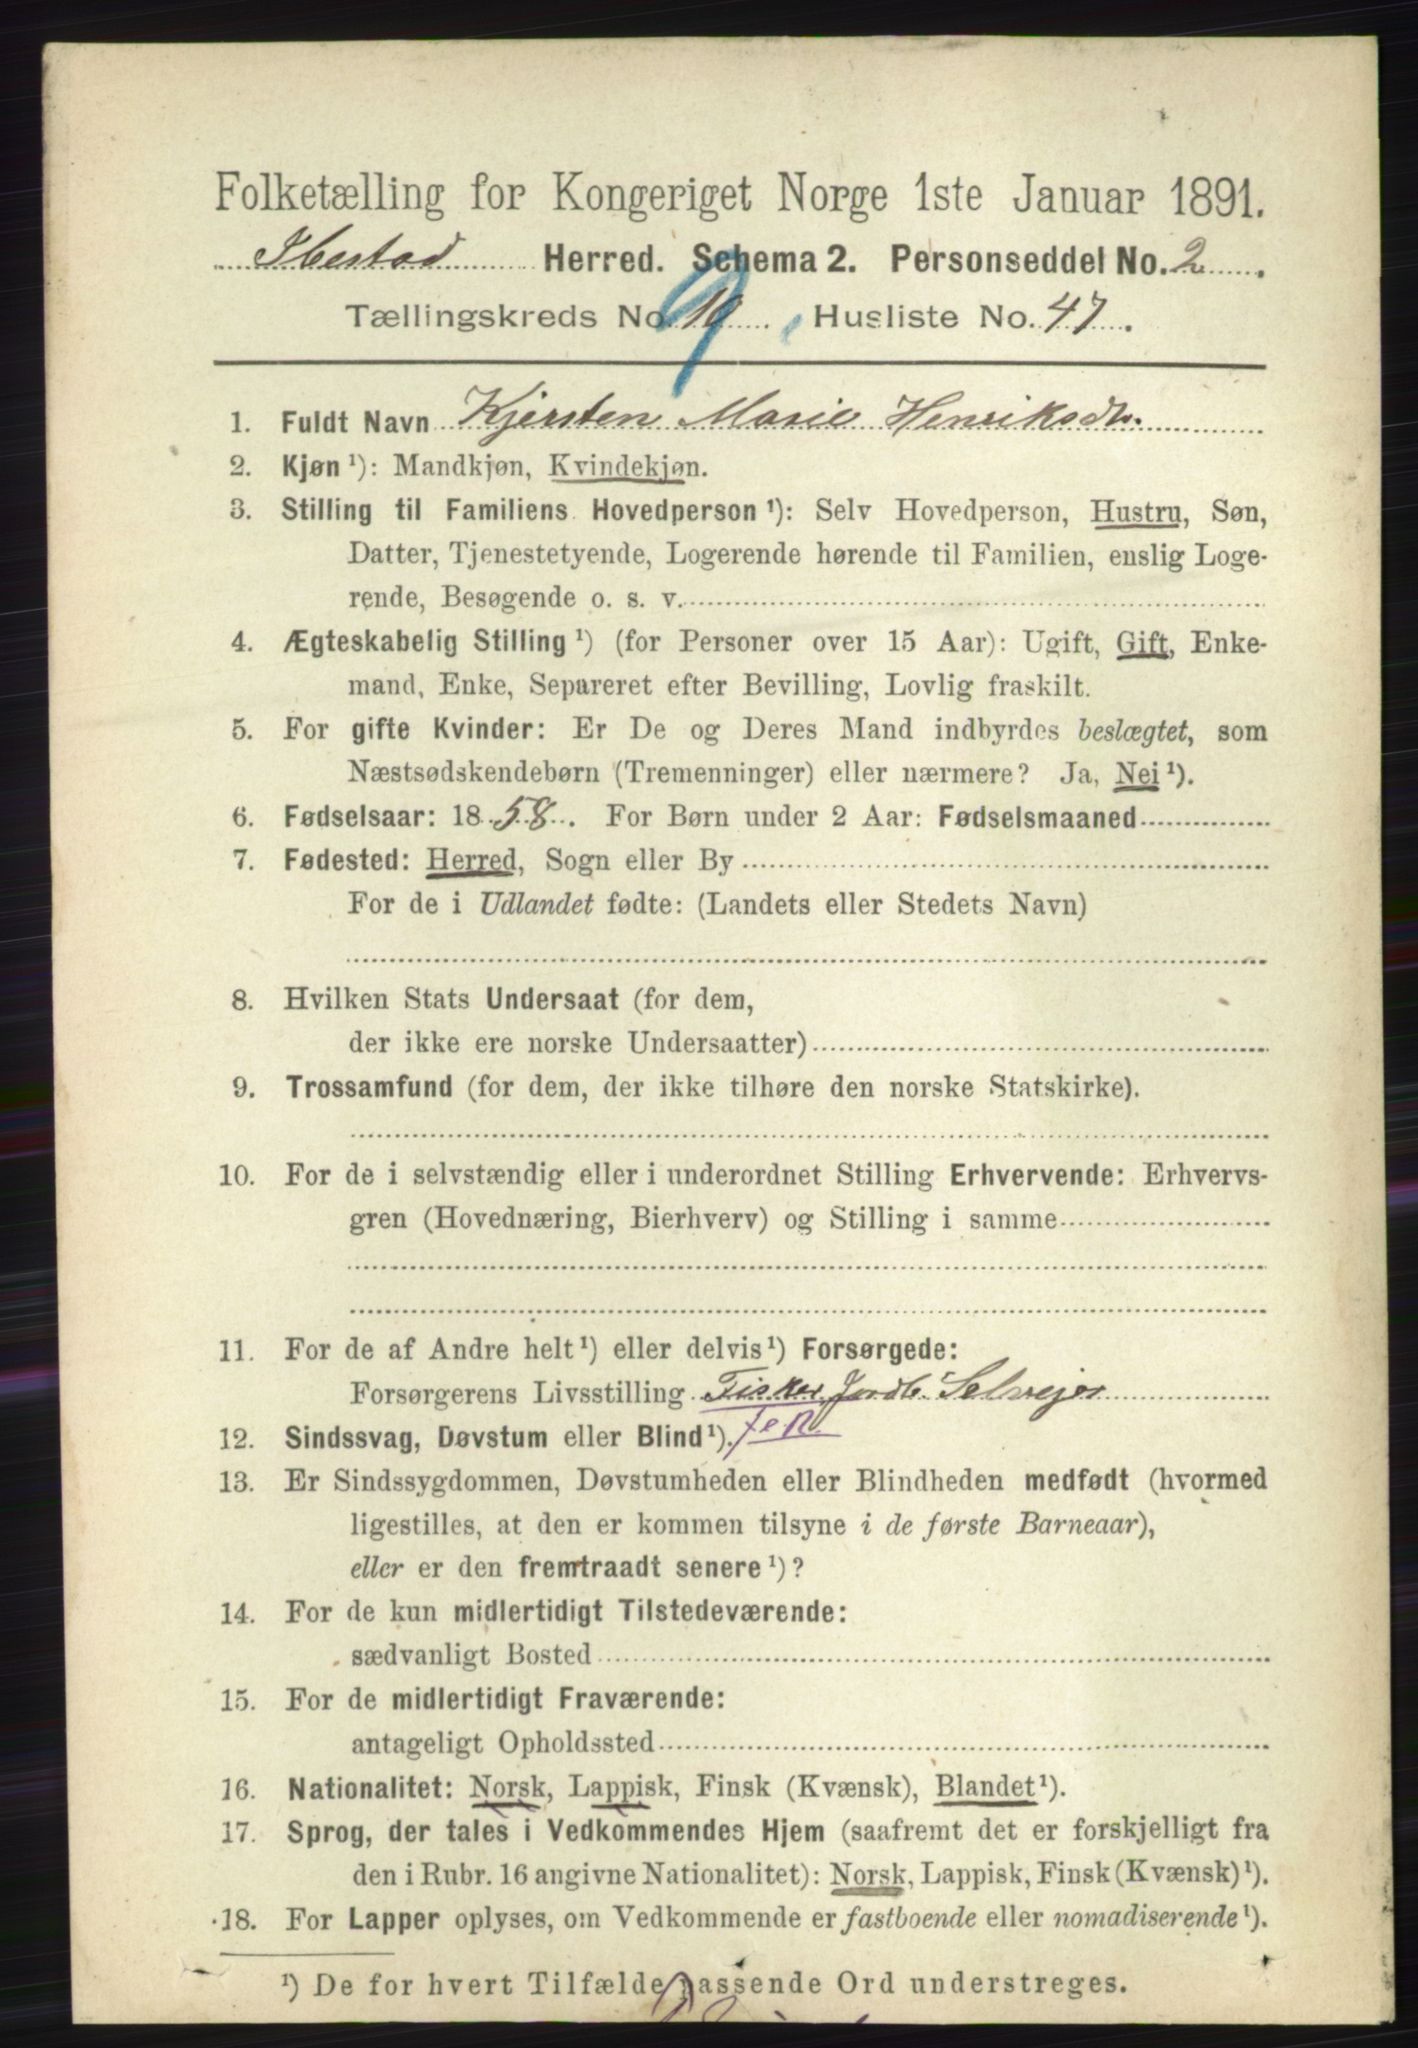 Folketælling for Kongeriget Norge 1ste Januar 1891.
Ibestad Herred. Schema 2. Personseddel No. 2.
Tællingskreds No. 10. 9 Husliste No. 47.
1. Fuldt Navn Kjersten Marie Henriksdtr.
2. Kjøn ¹): Mandkjøn, Kvindekjøn.
3. Stilling til Familiens Hovedperson ¹): Selv Hovedperson, Hustru, Søn,
Datter, Tjenestetyende, Logerende hørende til Familien, enslig Loge-
rende, Besøgende o. s. v.
4. Ægteskabelig Stilling ¹) (for Personer over 15 Aar): Ugift, Gift, Enke-
mand, Enke, Separeret efter Bevilling, Lovlig fraskilt.
5. For gifte Kvinder: Er De og Deres Mand indbyrdes beslægtet, som
Næstsødskendebørn (Tremenninger) eller nærmere? Ja, Nei ¹).
6. Fødselsaar: 1858. For Børn under 2 Aar: Fødselsmaaned
7. Fødested: Herred, Sogn eller By
For de i Udlandet fødte: (Landets eller Stedets Navn)
8. Hvilken Stats Undersaat (for dem,
der ikke ere norske Undersaatter)
9. Trossamfund (for dem, der ikke tilhøre den norske Statskirke).
10. For de i selvstændig eller i underordnet Stilling Erhvervende: Erhvervs-
gren (Hovednæring, Bierhverv) og Stilling i samme
11. For de af Andre helt ¹) eller delvis ¹) Forsørgede:
Forsørgerens Livsstilling Fisker Jordb. Selvejer
12. Sindssvag, Døvstum eller Blind ¹).
13. Er Sindssygdommen, Døvstumheden eller Blindheden medfødt (hvormed
ligestilles, at den er kommen tilsyne i de første Barneaar),
eller er den fremtraadt senere ¹)?
14. For de kun midlertidigt Tilstedeværende:
sædvanligt Bosted
15. For de midlertidigt Fraværende:
antageligt Opholdssted
16. Nationalitet: Norsk, Lappisk, Finsk (Kvænsk), Blandet ¹).
17. Sprog, der tales i Vedkommendes Hjem (saafremt det er forskjelligt fra
den i Rubr. 16 angivne Nationalitet): Norsk, Lappisk, Finsk (Kvænsk) ¹).
18. For Lapper oplyses, om Vedkommende er fastboende eller nomadiserende ¹).
¹) De for hvert Tilfælde passende Ord understreges.